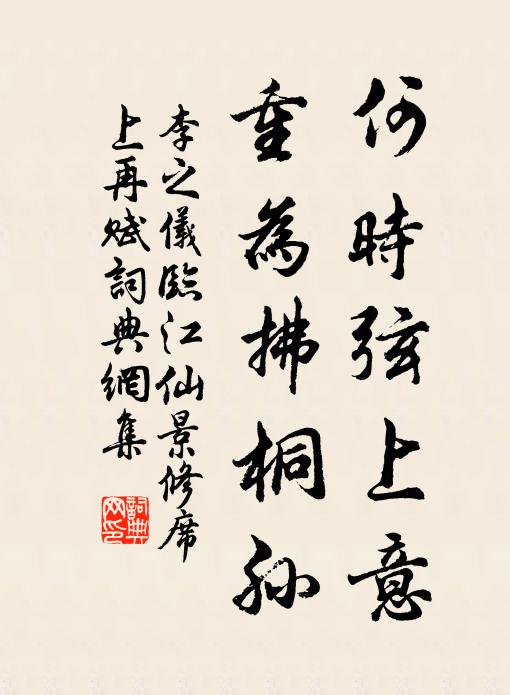 何時弦上意
重為拂桐孫
李之儀臨江仙景修席
上再賦詞典網集
詞典
网印